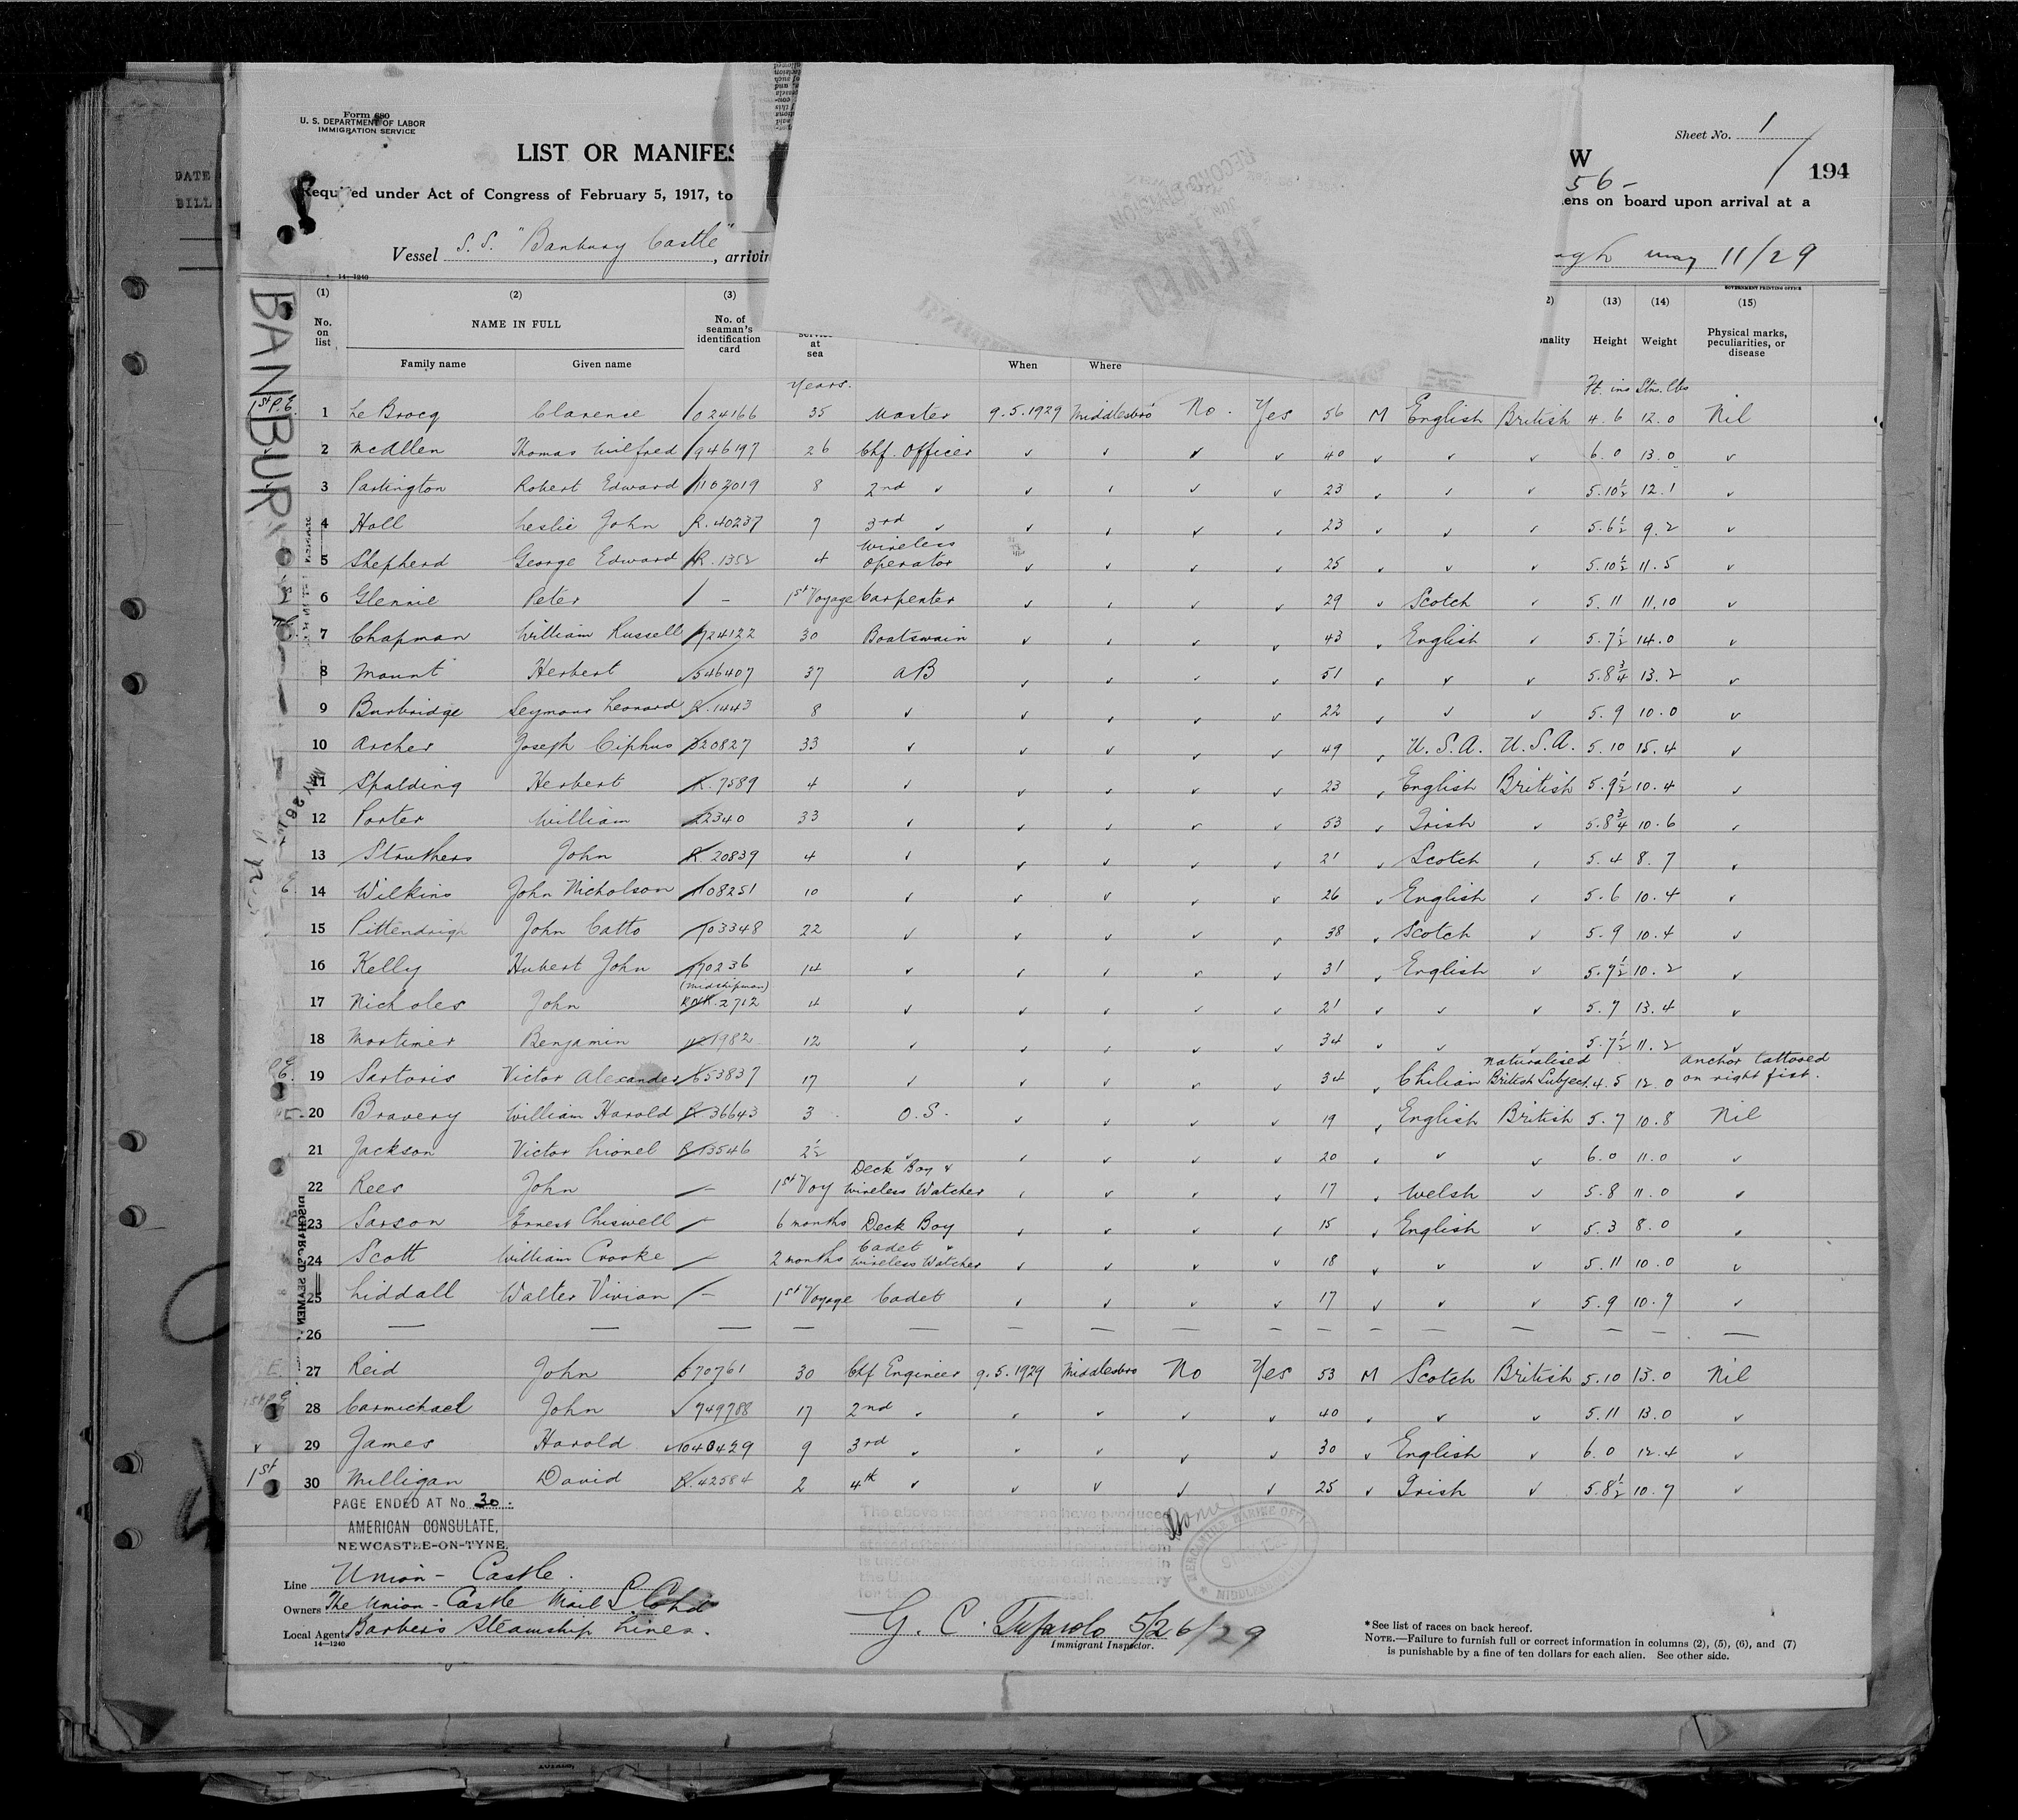 Form 680
U. S. DEPARTMENT OF LABOR
IMMIGRATION SERVICE
Sheet No. 1
LIST OR MANIFES
W
194
56-
Required under Act of Congress of February 5, 1917, to
ens on board upon arrival at a
Vessel S.S. "Banbury Castle", arrivin
may 11/29
14-1240
GOVERNMENT PRINTING OFFICE
BANBURY
(1) (2) (3) (13) (14) (15)
No. on list NAME IN FULL No. of seaman's identification card at sea Height Weight Physical marks, peculiarities, or disease
Family name Given name When Where
years. Ft. ins Stns. lbs
1st P.E. 1 Le Brocq Clarence 1024166 35 Master 9.5.1929 Middlesbro' No. Yes 56 M English British 4.6 12.0 Nil
2 McAllen Thomas Wilfred 946197 26 Chf. Officer ✓ ✓ ✓ ✓ 40 ✓ ✓ ✓ 6.0 13.0 ✓
3 Partington Robert Edward 1103019 8 2nd ✓ ✓ ✓ ✓ ✓ 23 ✓ ✓ ✓ 5.10½ 12.1 ✓
4 Holl Leslie John R.40237 7 3rd ✓ ✓ ✓ ✓ ✓ 23 ✓ ✓ ✓ 5.6½ 9.2 ✓
5 Shepherd George Edward R.1352 4 Wireless Operator ✓ ✓ ✓ ✓ 25 ✓ ✓ ✓ 5.10½ 11.5 ✓
6 Glennie Peter - 1st Voyage Carpenter ✓ ✓ ✓ ✓ 29 ✓ Scotch ✓ 5.11 11.10 ✓
7 Chapman William Russell 724122 30 Boatswain ✓ ✓ ✓ ✓ 43 ✓ English ✓ 5.7½ 14.0 ✓
8 Mount Herbert 546407 37 AB ✓ ✓ ✓ ✓ 51 ✓ ✓ ✓ 5.8¾ 13.2 ✓
9 Burbridge Seymour Leonard R.1443 8 ✓ ✓ ✓ ✓ ✓ 22 ✓ ✓ ✓ 5.9 10.0 ✓
10 Archer Joseph Ciphus 320827 33 ✓ ✓ ✓ ✓ ✓ 49 ✓ U.S.A. U.S.A. 5.10 15.4 ✓
11 Spalding Herbert R.7589 4 ✓ ✓ ✓ ✓ ✓ 23 ✓ English British 5.9½ 10.4 ✓
12 Porter William 22340 33 ✓ ✓ ✓ ✓ ✓ 53 ✓ Irish ✓ 5.8¾ 10.6 ✓
13 Struthers John R.20839 4 ✓ ✓ ✓ ✓ ✓ 21 ✓ Scotch ✓ 5.4 8.7 ✓
14 Wilkins John Nicholson 1108251 10 ✓ ✓ ✓ ✓ ✓ 26 ✓ English ✓ 5.6 10.4 ✓
15 Pittendrigh John Catto 703348 22 ✓ ✓ ✓ ✓ ✓ 38 ✓ Scotch ✓ 5.9 10.4 ✓
16 Kelly Hubert John 770236 14 ✓ ✓ ✓ ✓ ✓ 31 ✓ English ✓ 5.7½ 10.2 ✓
(Midshipman)
17 Nicholes John 2712 4 ✓ ✓ ✓ ✓ ✓ 21 ✓ ✓ ✓ 5.7 13.4 ✓
18 Mortimer Benjamin 1121982 12 ✓ ✓ ✓ ✓ ✓ 34 ✓ ✓ ✓ 5.7½ 11.2 ✓
19 Sartoris Victor Alexander 653837 17 ✓ ✓ ✓ ✓ ✓ 34 ✓ Chilian Naturalised British Subject 4.5 12.0 Anchor tattooed on right fist.
20 Bravery William Harold R 36643 3 O.S. ✓ ✓ ✓ ✓ 19 ✓ English British 5.7 10.8 Nil
21 Jackson Victor Lionel R 13546 2½ ✓ ✓ ✓ ✓ ✓ 20 ✓ ✓ ✓ 6.0 11.0 ✓
22 Rees John - 1st Voy Deck Boy & Wireless Watcher ✓ ✓ ✓ ✓ 17 ✓ Welsh ✓ 5.8 11.0 ✓
23 Sarson Ernest Chiswell - 6 months Deck Boy ✓ ✓ ✓ ✓ 15 ✓ English ✓ 5.3 8.0 ✓
24 Scott William Crooke - 2 months Cadet & Wireless Watcher ✓ ✓ ✓ ✓ 18 ✓ ✓ ✓ 5.11 10.0 ✓
25 Liddall Walter Vivian - 1st Voyage Cadet ✓ ✓ ✓ ✓ 17 ✓ ✓ ✓ 5.9 10.7 ✓
26 — — — — — — — — — — — — — — — —
27 Reid John 570761 30 Chf Engineer 9.5.1929 Middlesbro No Yes 53 M Scotch British 5.10 13.0 Nil
28 Carmichael John 749788 17 2nd ✓ ✓ ✓ ✓ ✓ 40 ✓ ✓ ✓ 5.11 13.0 ✓
29 James Harold 1040429 9 3rd ✓ ✓ ✓ ✓ ✓ 30 ✓ English ✓ 6.0 12.4 ✓
1st 30 Milligan David R.42584 2 4th ✓ ✓ ✓ ✓ ✓ 25 ✓ Irish ✓ 5.8½ 10.7 ✓
DISCHARGED SEAMEN
PAGE ENDED AT No. 30.
AMERICAN CONSULATE,
NEWCASTLE-ON-TYNE.
The above named persons have produced
MERCANTILE MARINE OFFICE
MIDDLESBROUGH
Line Union-Castle.
Owners The Union-Castle Mail S.S. Co Ltd
Local Agents Barber's Steamship Lines.
14-1240
5/26/29
Immigrant Inspector.
*See list of races on back hereof.
NOTE.—Failure to furnish full or correct information in columns (2), (5), (6), and (7)
is punishable by a fine of ten dollars for each alien. See other side.